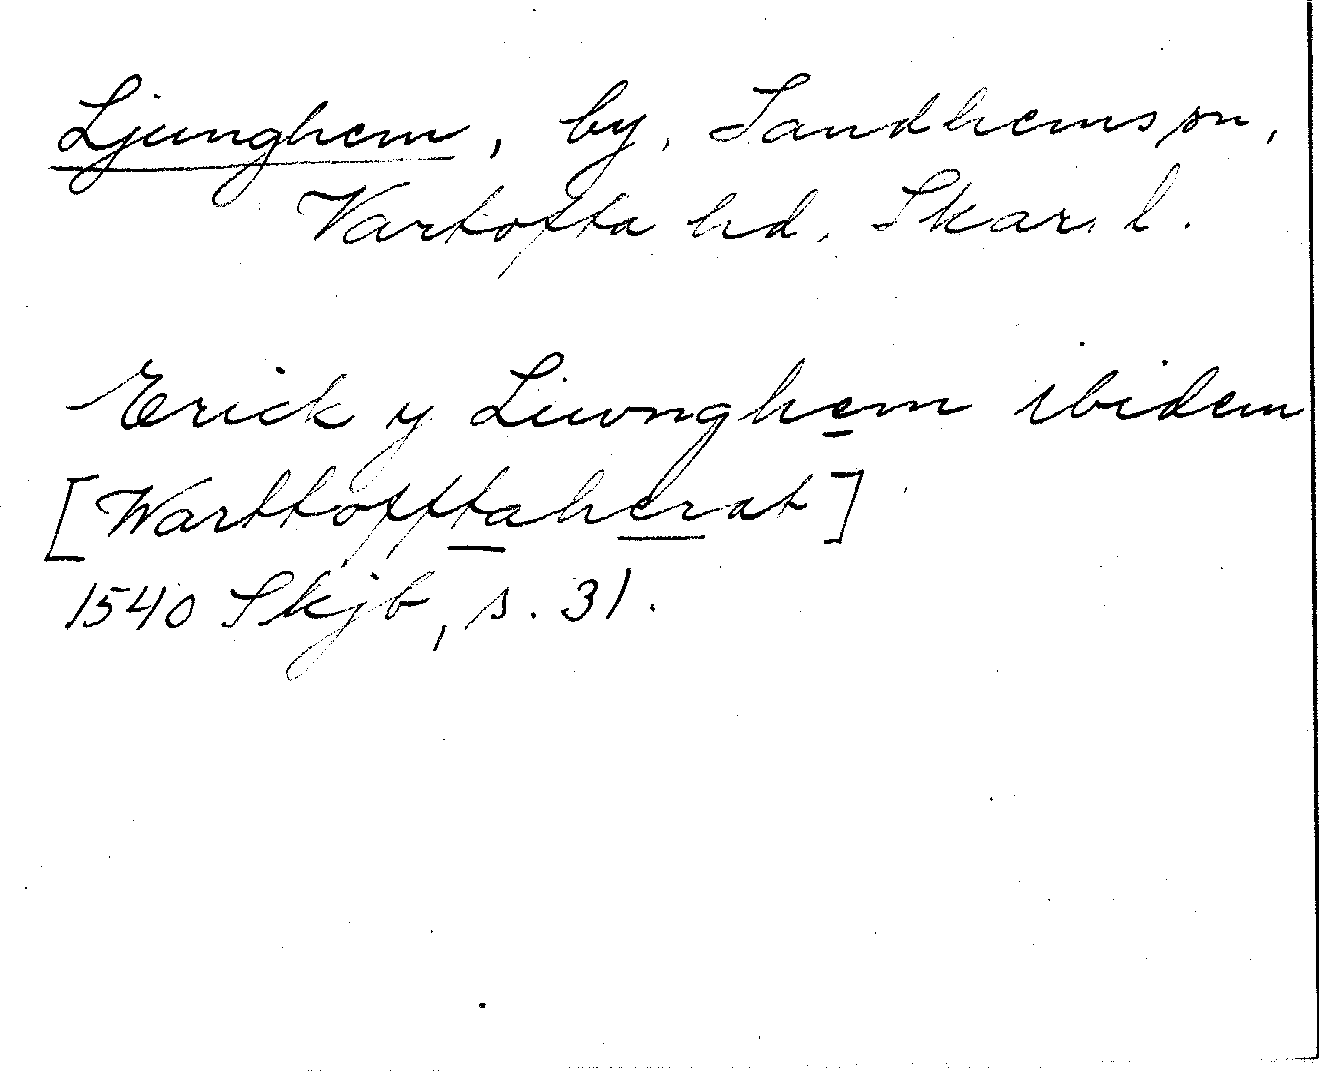 Ljunghem, by, Sandhems sn,
Vartofta hd, Skar. l.
Erick y Liwnghem ibidem
[Warttofftaherat]
1540 Skjb, s. 31.